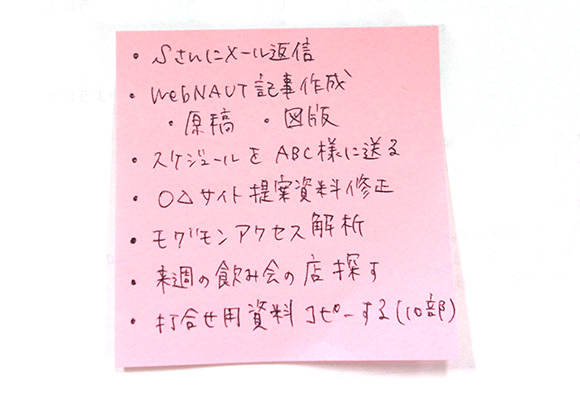 ・Sさんにメール返信
・WebNAUT記事作成
・原稿 ・図版
・スケジュールをABC様に送る
・○△サイト提案資料修正
・モグモンアクセス解析
・来週の飲み会の店探す
・打合せ用資料コピーする(10部)